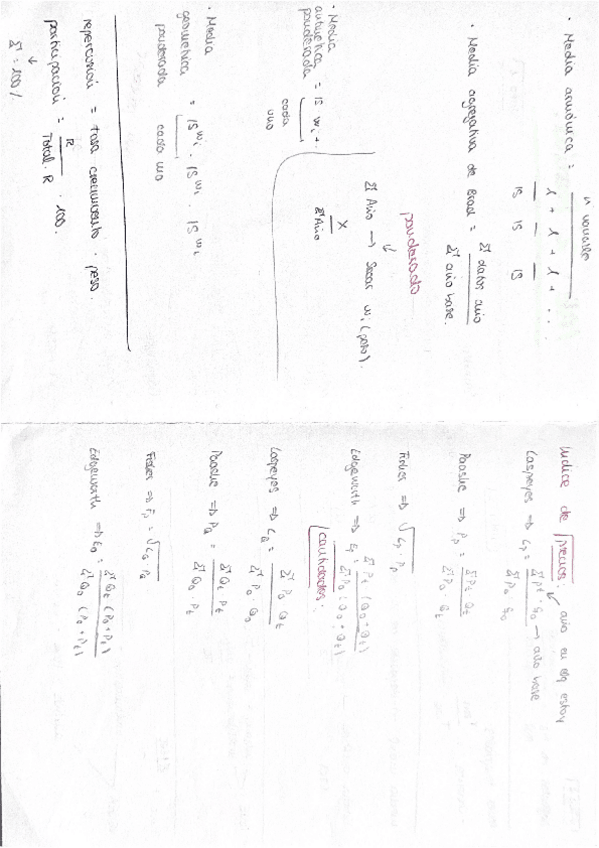 · Media armónica = n variable / 1/IS + 1/IS + 1/IS + ...
· Media agregativa de Bradl = Σ datos año / Σ año base.
ponderado
Σ Año → Sacar wi (peso).
X / Σ Año
· Media aritmética ponderada = IS · wi + ·
cada uno
· Media geométrica ponderada = IS^wi · IS^wi · IS^wi
cada uno
repercusión = tasa crecimiento · peso.
participación = R / Total R · 100.
Σ = 100%
Indice de precios: año en el q estoy
Laspeyes => Lp = Σ Pt · Q0 / Σ P0 · Q0 → año base
Paasche => Pp = Σ Pt · Qt / Σ P0 · Qt
Fisher => √ Lp · Pp
Edgeworth => Ep = Σ Pt (Q0 + Qt) / Σ P0 (Q0 + Qt)
cantidades:
Laspeyes => LQ = Σ P0 Qt / Σ P0 · Q0
Paasche => PQ = Σ Qt Pt / Σ Q0 · Pt
Fisher => Fp = √ LQ PQ
Edgeworth => EQ = Σ Qt (P0 + Pt) / Σ Q0 (P0 + Pt)